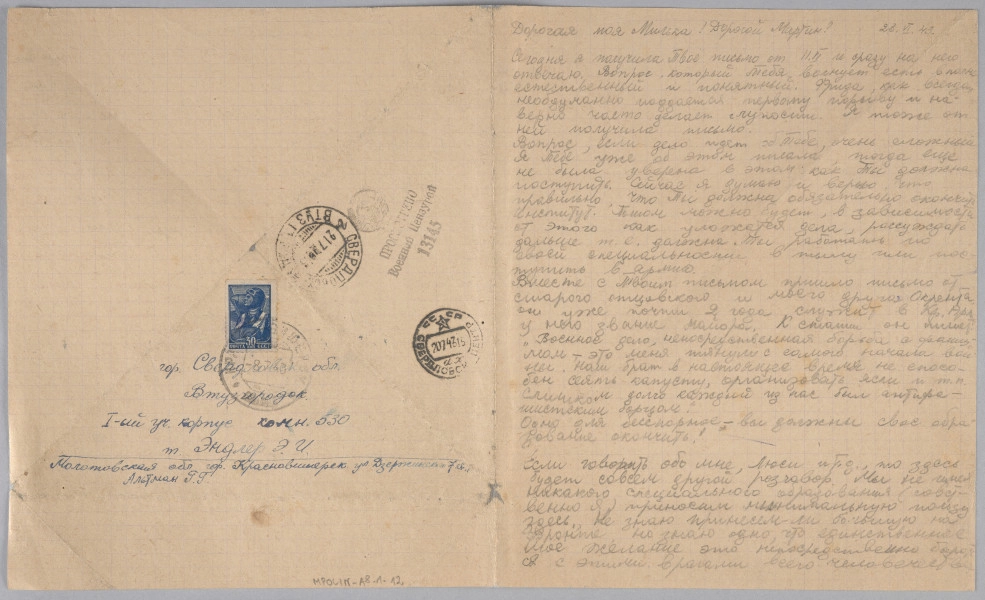 ПРОСМОТРЕНО
Военной Цензурой
13145
СВЕРДЛОВСК
ВТУЗГОРОДОК
СССР
20 7 43 15
СВЕРДЛОВСК
30
ПОЧТА СССР
гор. Свердловск обл.
Втузгородок
I-ый уч. корпус комн. 530
т. Эндлер Э. И.
Молотовская обл. гор. Красновишерск ул Дзержинского
Альтман Г. Г.
MPOLIN-A8-1-12.
Дорогая моя Милка! Дорогой Мартин!
Сегодня я получила Твоё письмо от и сразу на него
отвечаю. Вопрос, который Тебя волнует есть вполне
естественный и понятный. Фрида, как всегда,
необдуманно поддаётся первому порыву и на-
верно часто делает глупости. Я тоже от
неё получила письмо.
Вопрос, если дело идет о Тебе, очень сложный
Я Тебе уже об этом писала, тогда еще
не была уверена в этом как Ты должна
поступить. Сейчас я думаю и верю что
правильно, что Ты должна обязательно окончить
институт. Потом можно будет, в зависимости
от этого как уложатся дела, рассуждать
дальше т.е. должна Ты работать по
своей специальности в тылу или пос-
тупить в армию.
Вместе с Твоим письмом пришло письмо от
старого отцовского и моего друга
он уже почти 2 года служит в Кр. Арм.
у него звание майора. Кстати он пишет
"Военное дело, непосредственная борьба с фашиз-
мом - это меня тянуло с самого начала вой-
ны. Наш брат в настоящее время не спосо-
бен сеять капусту, организовать ясли и т.п.
Слишком долго каждый из нас был антифа-
шистским борцом."
Одно для бесспорное - вы должны свое обра-
зование окончить!
Если говорить обо мне, Люси и др., то здесь
будет совсем другой разговор. Мы не имеем
никакого специального образования
и приносим минимальную пользу
здесь. Не знаю принесем-ли большую на
фронте но знаю одно, что единственное
мое желание это непосредственно борот-
ся с этими врагами всего человечества